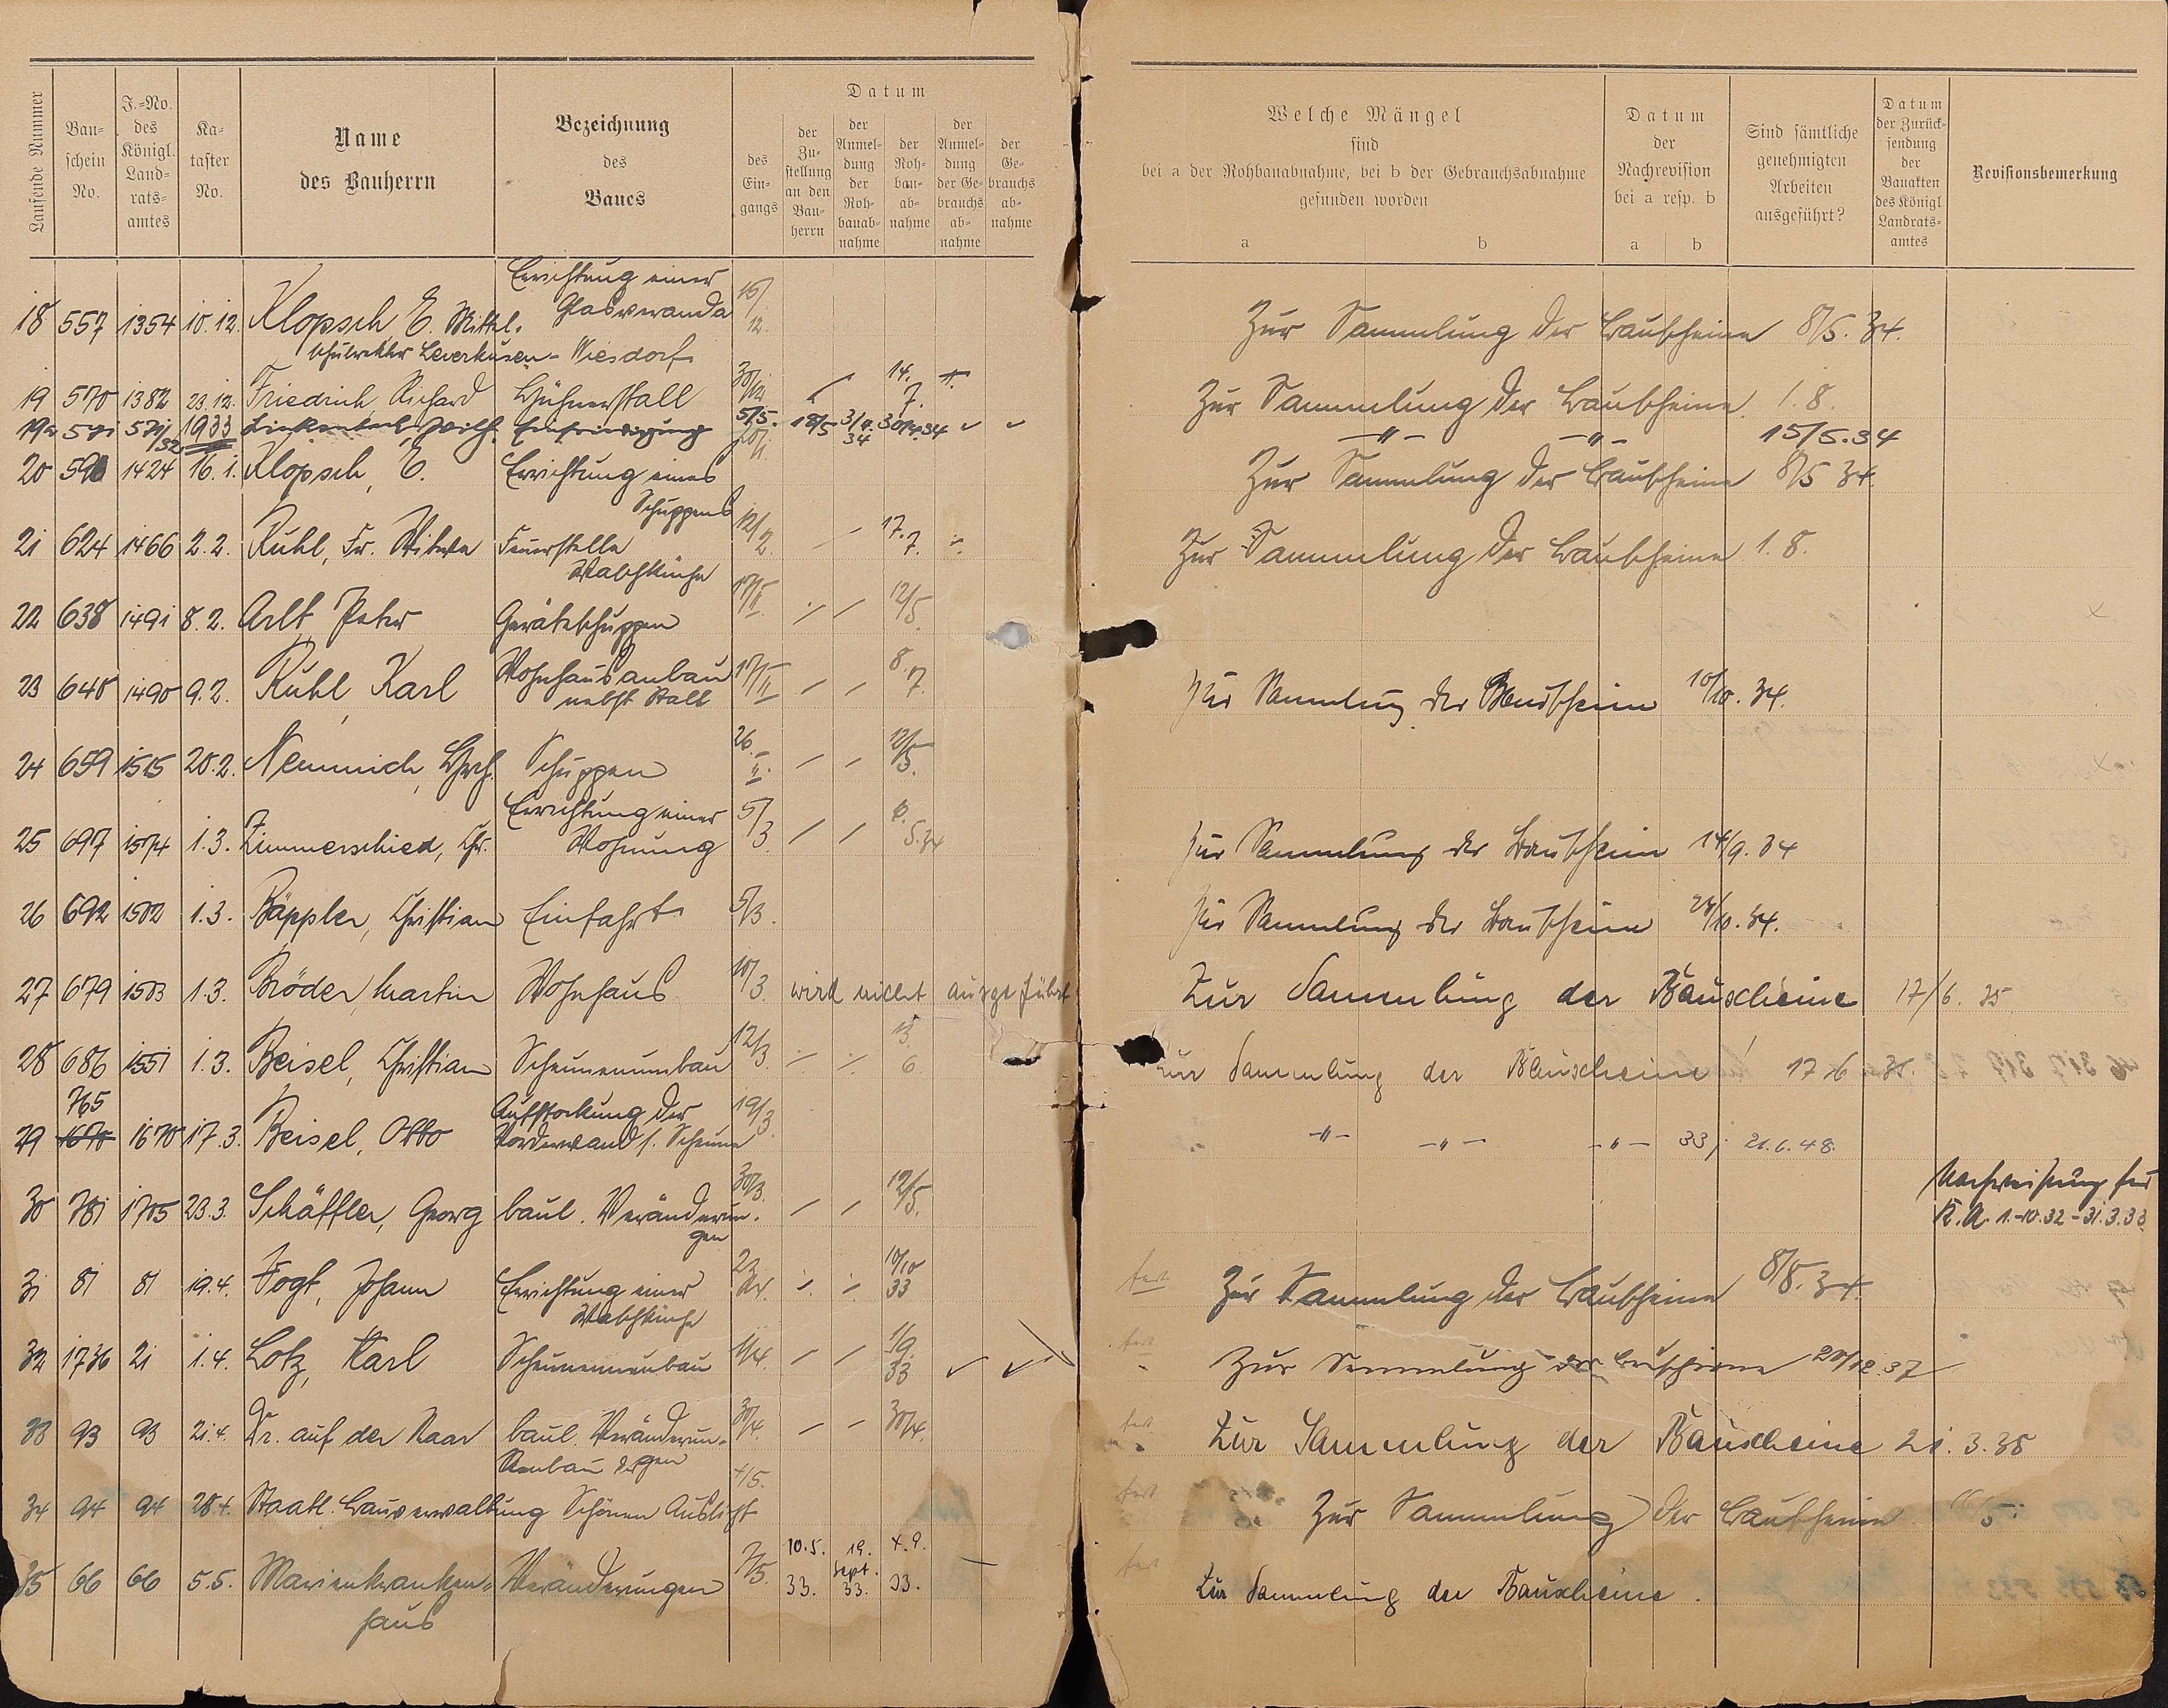 Laufende Nummer
Bau-schein No.
J.-No. des Königl. Land-rats-amtes
Ka-taster No.
Name des Bauherrn
Bezeichnung des Baues
Datum
des Ein-gangs
der Zu-stellung an den Bau-herrn
der Anmel-dung der Roh-bauab-nahme
der Roh-bau-ab-nahme
der Anmel-dung der Ge-brauchs ab-nahme
der Ge-brauchs ab-nahme
Welche Mängel sind bei a der Rohbauabnahme, bei b der Gebrauchsabnahme gefunden worden
a b
Datum der Nachrevision bei a resp. b
a b
Sind sämtliche genehmigten Arbeiten ausgeführt?
Datum der Zurück-sendung der Bauakten des Königl. Landrats-amtes
Revisionsbemerkung
Errichtung einer
18 557 1354 10.12. Klopsch E. Mittel- Glasveranda 16/12. Zur Sammlung der Bauscheine 8/5. 34.
schullehrer Leverkusen-Wiesdorf
19 570 1382 23.12. Friedrich, Richard Hühnerstall 30/12 14. 7. Zur Sammlung der Bauscheine 1.8.
19a 571 571/32 1933 Einfriedigung 5/5. 18/5 3/4. 34 30/4.34 -"- -"- 15/5.34
20 590 1424 16.1. Klopsch, E. Errichtung eines Zur Sammlung der Bauscheine 8/5 34.
Schuppens
21 624 1466 2.2. Kuhl, Fr. Witwe Feuerstelle 12/2. 17. 7. Zur Sammlung der Bauscheine 1.8.
Waschküche
22 638 1491 8.2. Arlt, Peter Geräteschuppen 17/II. 12/5.
23 648 1490 9.2. Kuhl, Karl Wohnhausanbau 17/II 8. 7. Zur Sammlung der Bauscheine 10/10. 34.
nebst Stall
24 659 1515 20.2. Nemnich, Schuppen 26. II. 12/5.
Errichtung einer
25 697 1574 1.3. Zimmerschied, Chr. Wohnung 5/3. 6. 5.34 Zur Sammlung der Bauscheine 14/9. 34
26 692 1502 1.3. Bäppler, Christian Einfahrt 5/3. Zur Sammlung der Bauscheine 24/10. 34.
27 679 1503 1.3. Bröder, Martin Wohnhaus 10/3. wird nicht ausgeführt Zur Sammlung der Bauscheine 17/6. 35
28 686 1551 1.3. Beisel, Christian Scheunenumbau 12/3. 13 6 Zur Sammlung der Bauscheine 17 6 35.
765 Aufstockung der
29 1670 1670 17.3. Beisel, Otto Vorderwand s. Scheune 19/3. -"- -"- -"- 33, 21.6.48.
30 781 1705 23.3. Schäffler, Georg baul. Veränderun-gen 30/3. 12/5. Nachweisung für
K.A. 1.-10.32-31.3.33
31 81 81 19.4. Vogt, Johann Errichtung einer 22. 10/10 33 fert Zur Sammlung der Bauscheine 8/5.34.
Waschküche
32 1736 21 1.4. Lotz, Karl Scheunenneubau 4/4. 1/9. 33 fert Zur Sammlung der Bauscheine 20/12.37
33 93 93 21.4. Dr. auf der Haar baul. Veränderun- 30/4. 30/4. fert Zur Sammlung der Bauscheine 21.3.35
gen
34 94 94 28.4. Staatl. Bauverwaltung Neubau der Schönen Aussicht 4/5. fert Zur Sammlung der Bauscheine
35 66 66 5.5. Marienkranken- Veränderungen 7/5. 10.5. 33. 19. Sept. 33. 4.9. 33. fert Zur Sammlung der Bauscheine.
haus